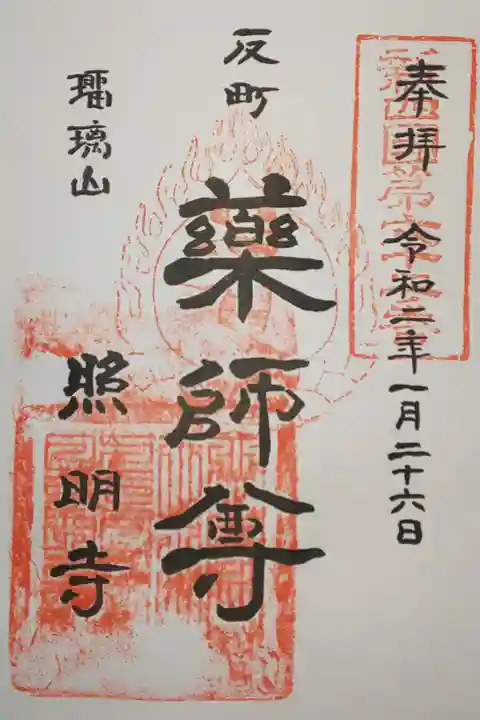 奉拝 令和二年一月二十六日
反町 藥師尊
瑠璃山 照明寺